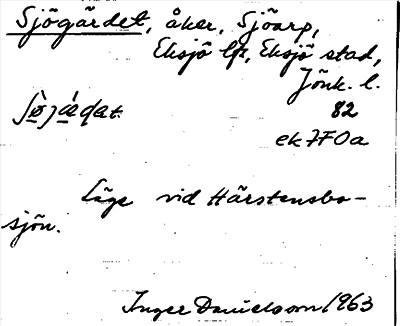 Sjögärdet, åker, Sjöarp,
Eksjö lfs, Eksjö stad,
Jönk. l.
82
ek 7F0a
Läge vid Härstensbo-
sjön.
Inger Danielsson 1963